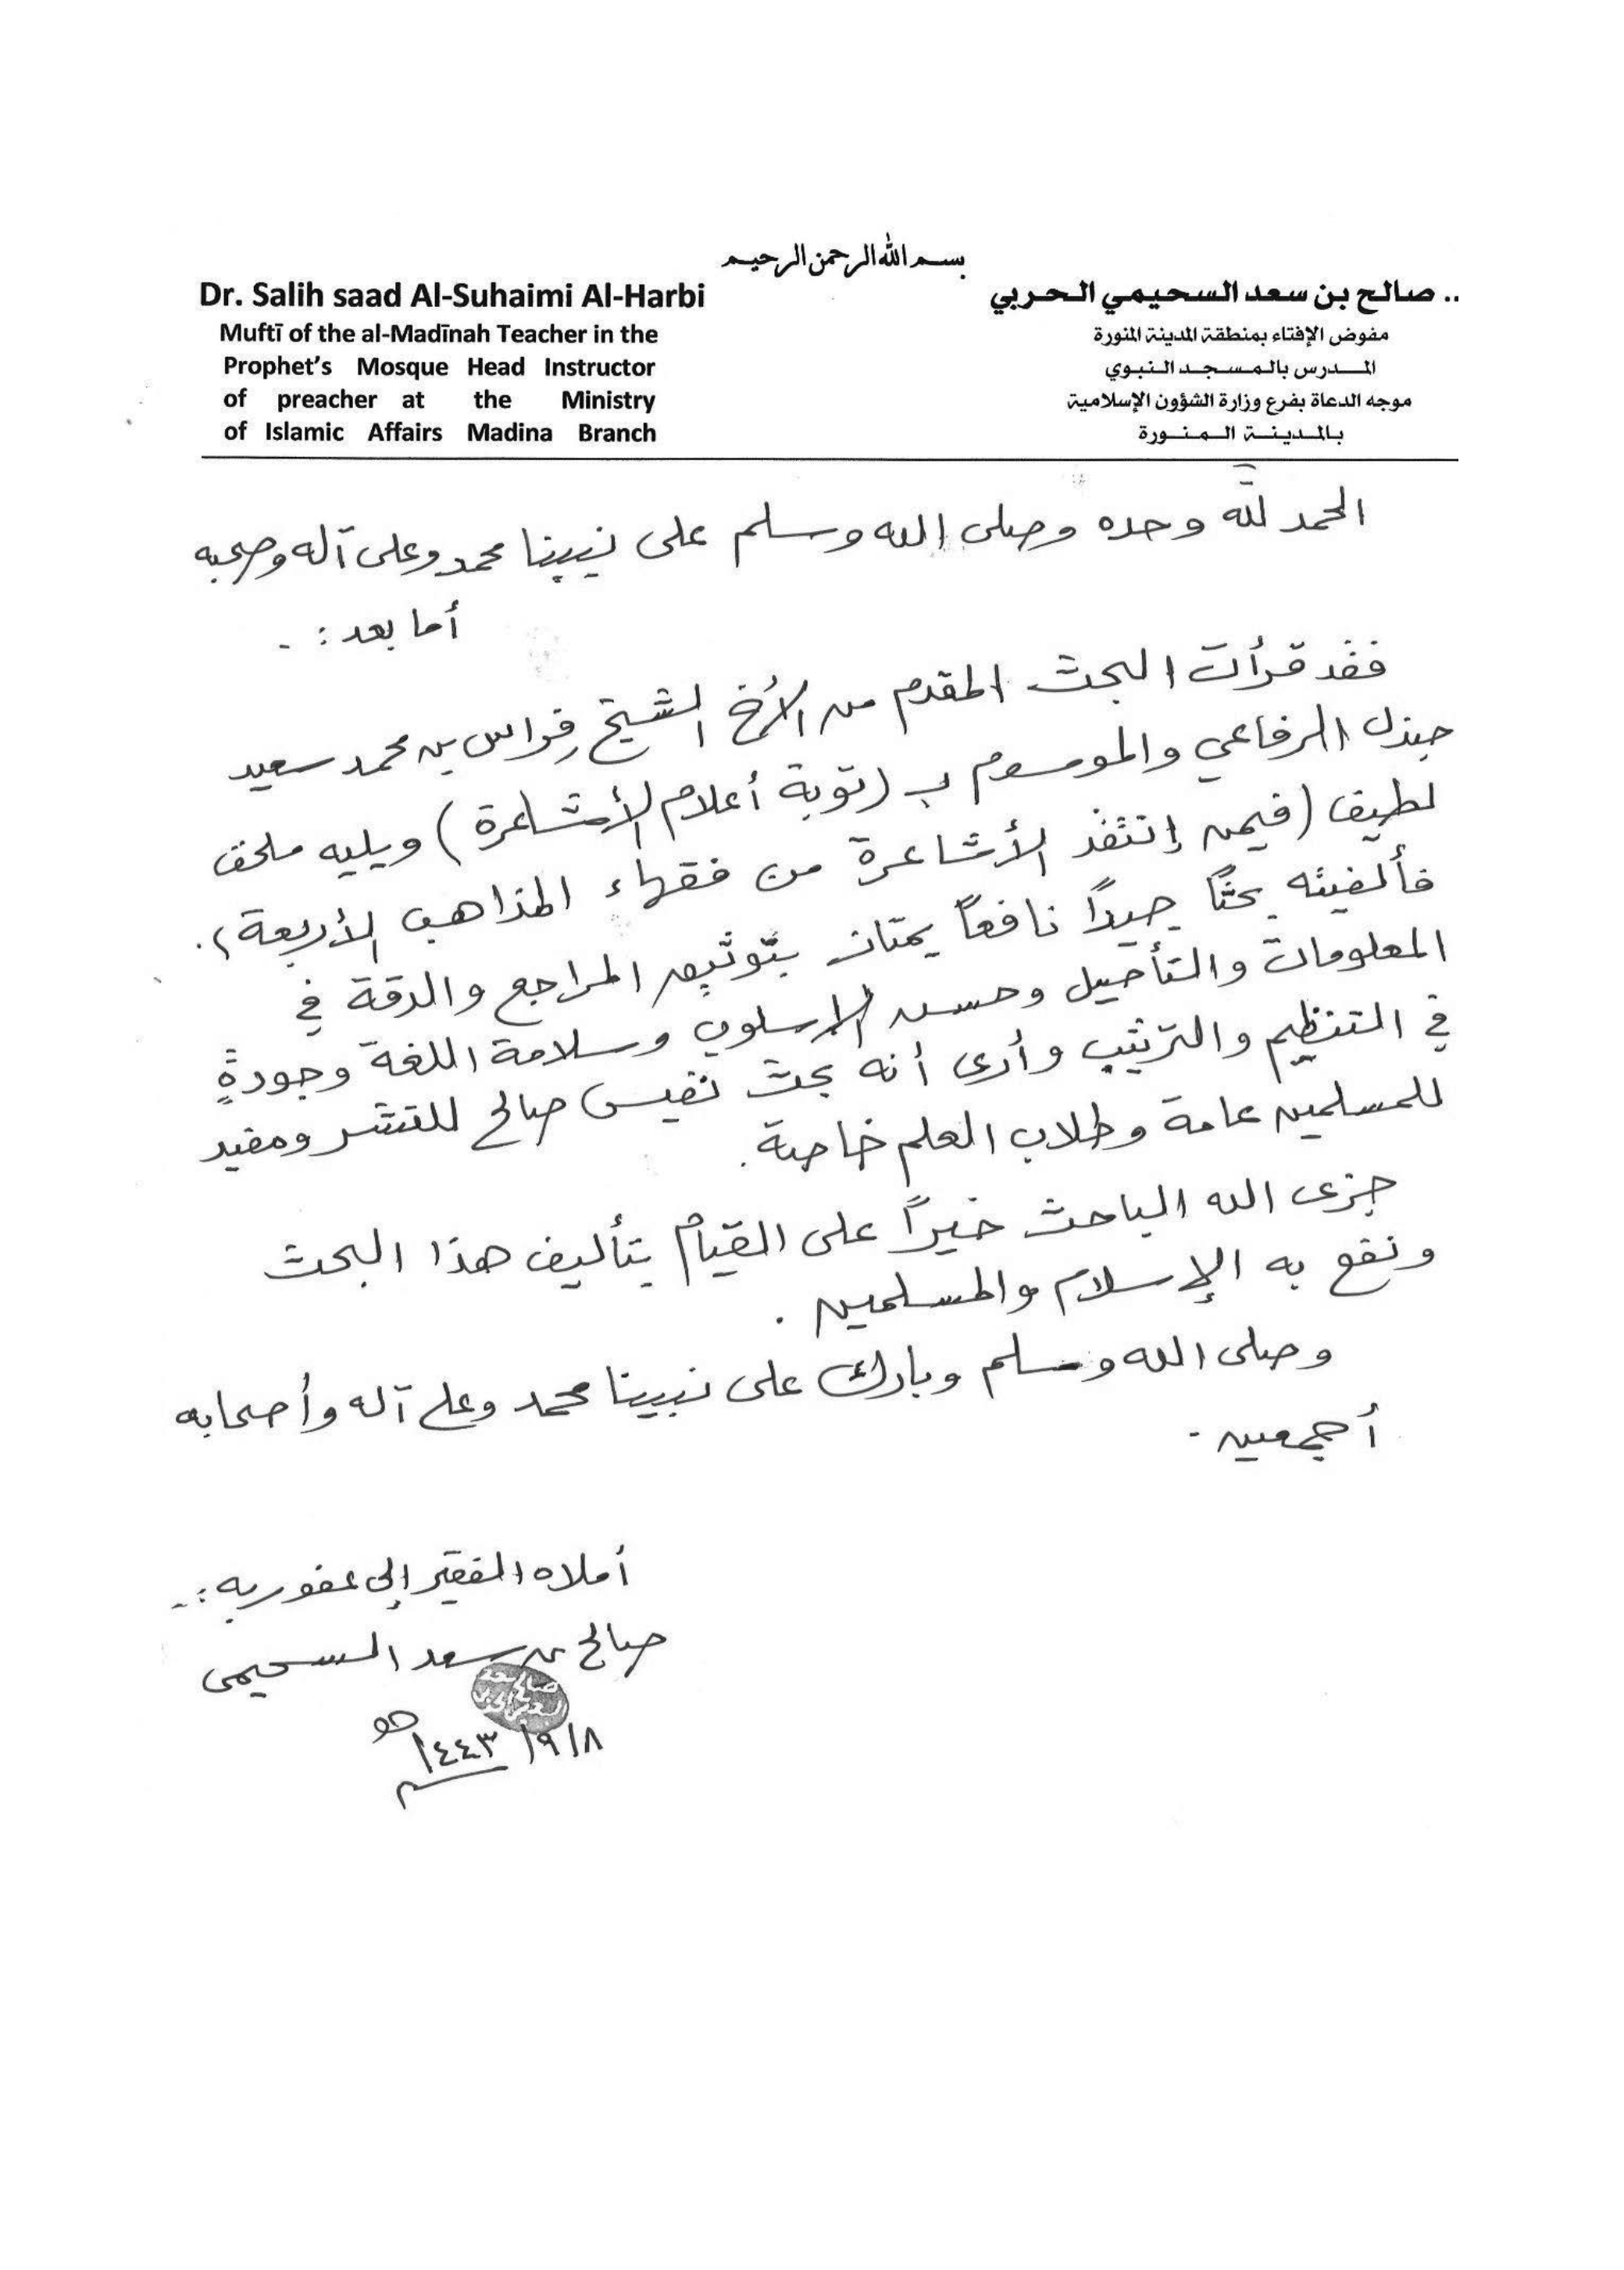 بسم الله الرحمن الرحيم
Dr. Salih saad Al-Suhaimi Al-Harbi
Muftī of the al-Madīnah Teacher in the
Prophet's Mosque Head Instructor
of preacher at the Ministry
of Islamic Affairs Madina Branch
.. صالح بن سعد السحيمي الحربي
مفوض الإفتاء بمنطقة المدينة المنورة
المدرس بالمسجد النبوي
موجه الدعاة بفرع وزارة الشؤون الإسلامية
بالمدينة المنورة
الحمد لله وحده وصلى الله وسلم على نبينا محمد وعلى آله وصحبه
أما بعد :-
فقد قرأت البحث المقدم من الأخ الشيخ فراس بن محمد سعيد
جندل الرفاعي والموسوم ب (توبة أعلام الأشاعرة) ويليه ملحق
لطيف (فيمن إنتقد الأشاعرة من فقهاء المذاهب الأربعة).
فألفيته بحثًا جيدًا نافعًا يمتاز بتوثيق المراجع والدقة في
المعلومات والتأصيل وحسن الاسلوب وسلامة اللغة وجودةٍ
في التنظيم والترتيب وأرى أنه بحث نفيس صالح للنشر ومفيد
للمسلمين عامة وطلاب العلم خاصة.
جزى الله الباحث خيرًا على القيام بتأليف هذا البحث
ونفع به الإسلام والمسلمين .
وصلى الله وسلم وبارك على نبينا محمد وعلى آله وأصحابه
أجمعين -
أملاه الفقير إلى عفو ربه :-
صالح بن سعد السحيمي
٨/٩/١٤٤٣هـ